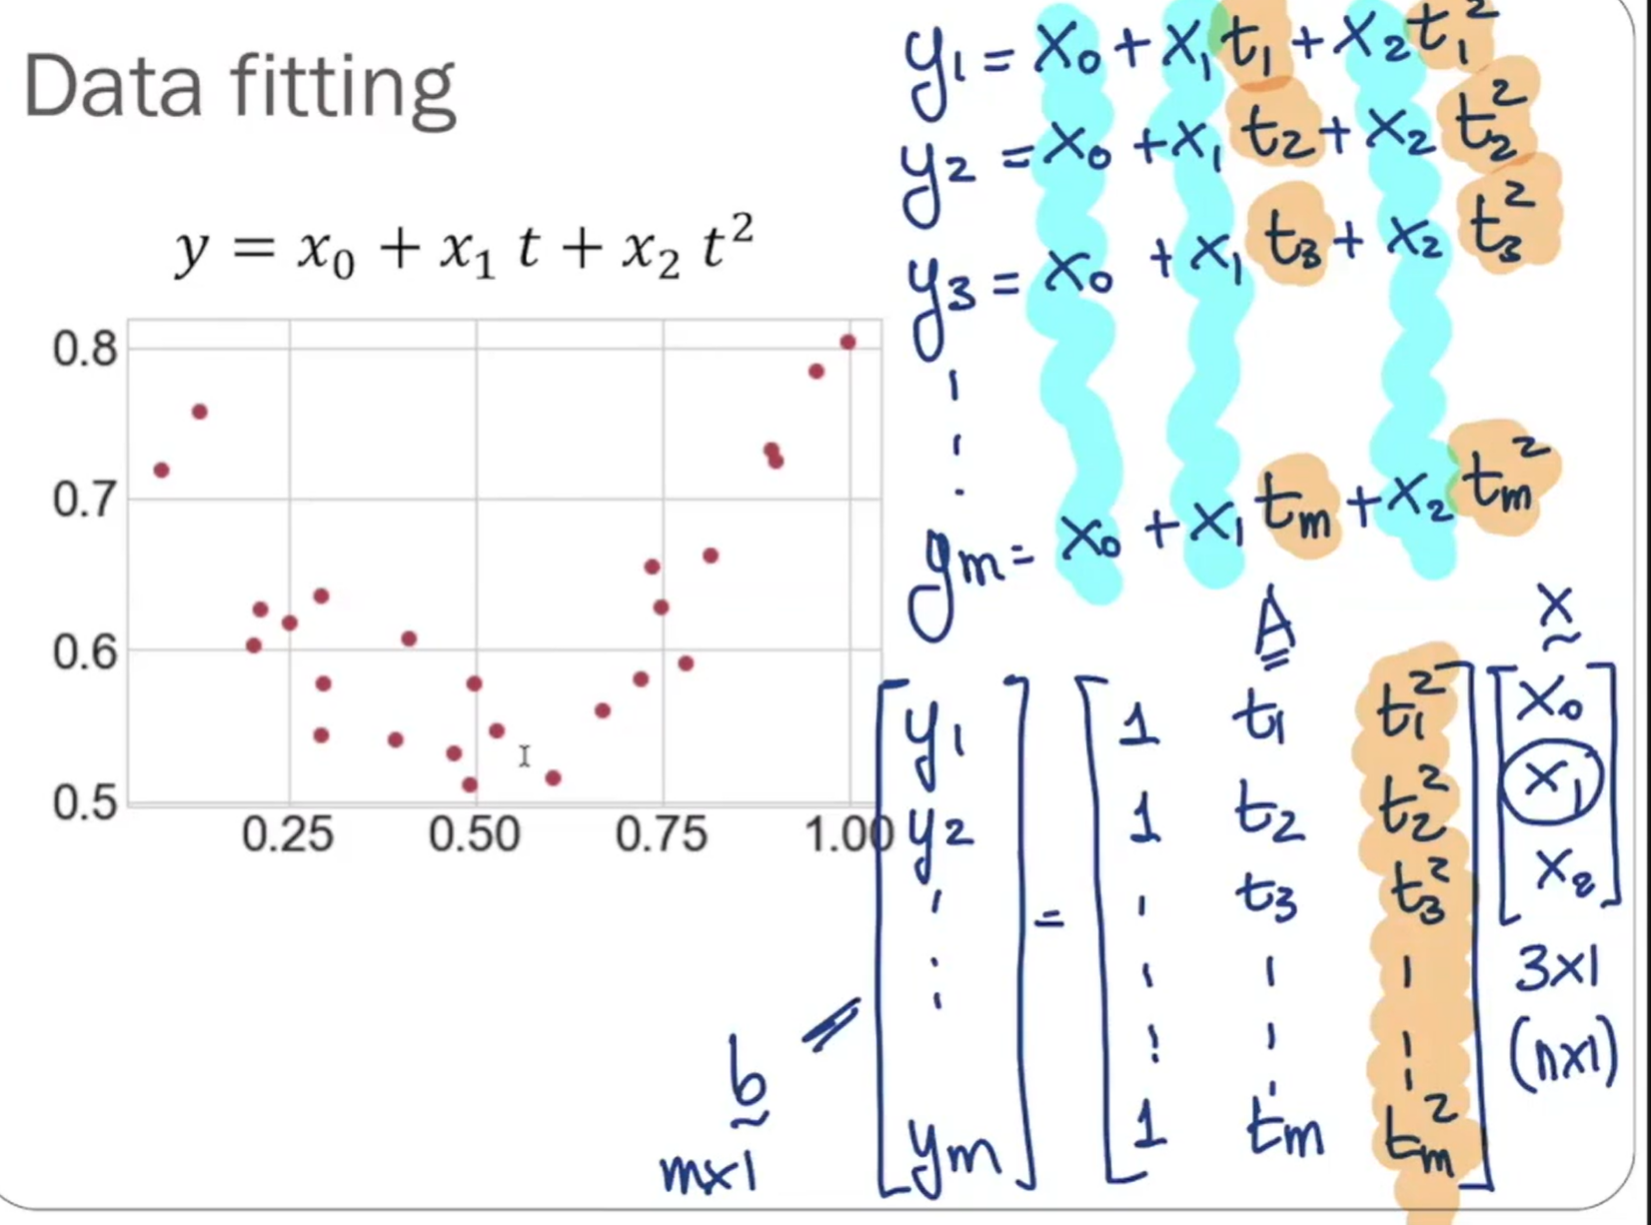 Data fitting
y = x₀ + x₁ t + x₂ t²
0.8
0.7
0.6
0.5
0.25 0.50 0.75 1.00
y₁ = x₀ + x₁ t₁ + x₂ t₁²
y₂ = x₀ + x₁ t₂ + x₂ t₂²
y₃ = x₀ + x₁ t₃ + x₂ t₃²
yₘ = x₀ + x₁ tₘ + x₂ tₘ²
A x
[ y₁ ] [ 1 t₁ t₁² ] [ x₀ ]
[ y₂ ] [ 1 t₂ t₂² ] [ x₁ ]
= t₃ t₃² [ x₂ ]
3x1
(nx1)
[ yₘ ] [ 1 tₘ tₘ² ]
b =
mx1